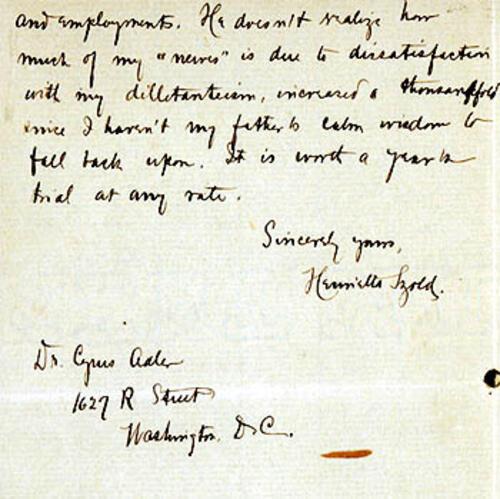 and employments. He doesn't realize how
much of my "nerves" is due to dissatisfaction
with my dilletanteism, increased a thousandfold
since I haven't my father's calm wisdom to
fall back upon. It is worth a year's
trial at any rate.
Sincerely yours,
Henrietta Szold.
Dr. Cyrus Adler
1627 R Street
Washington, D.C.